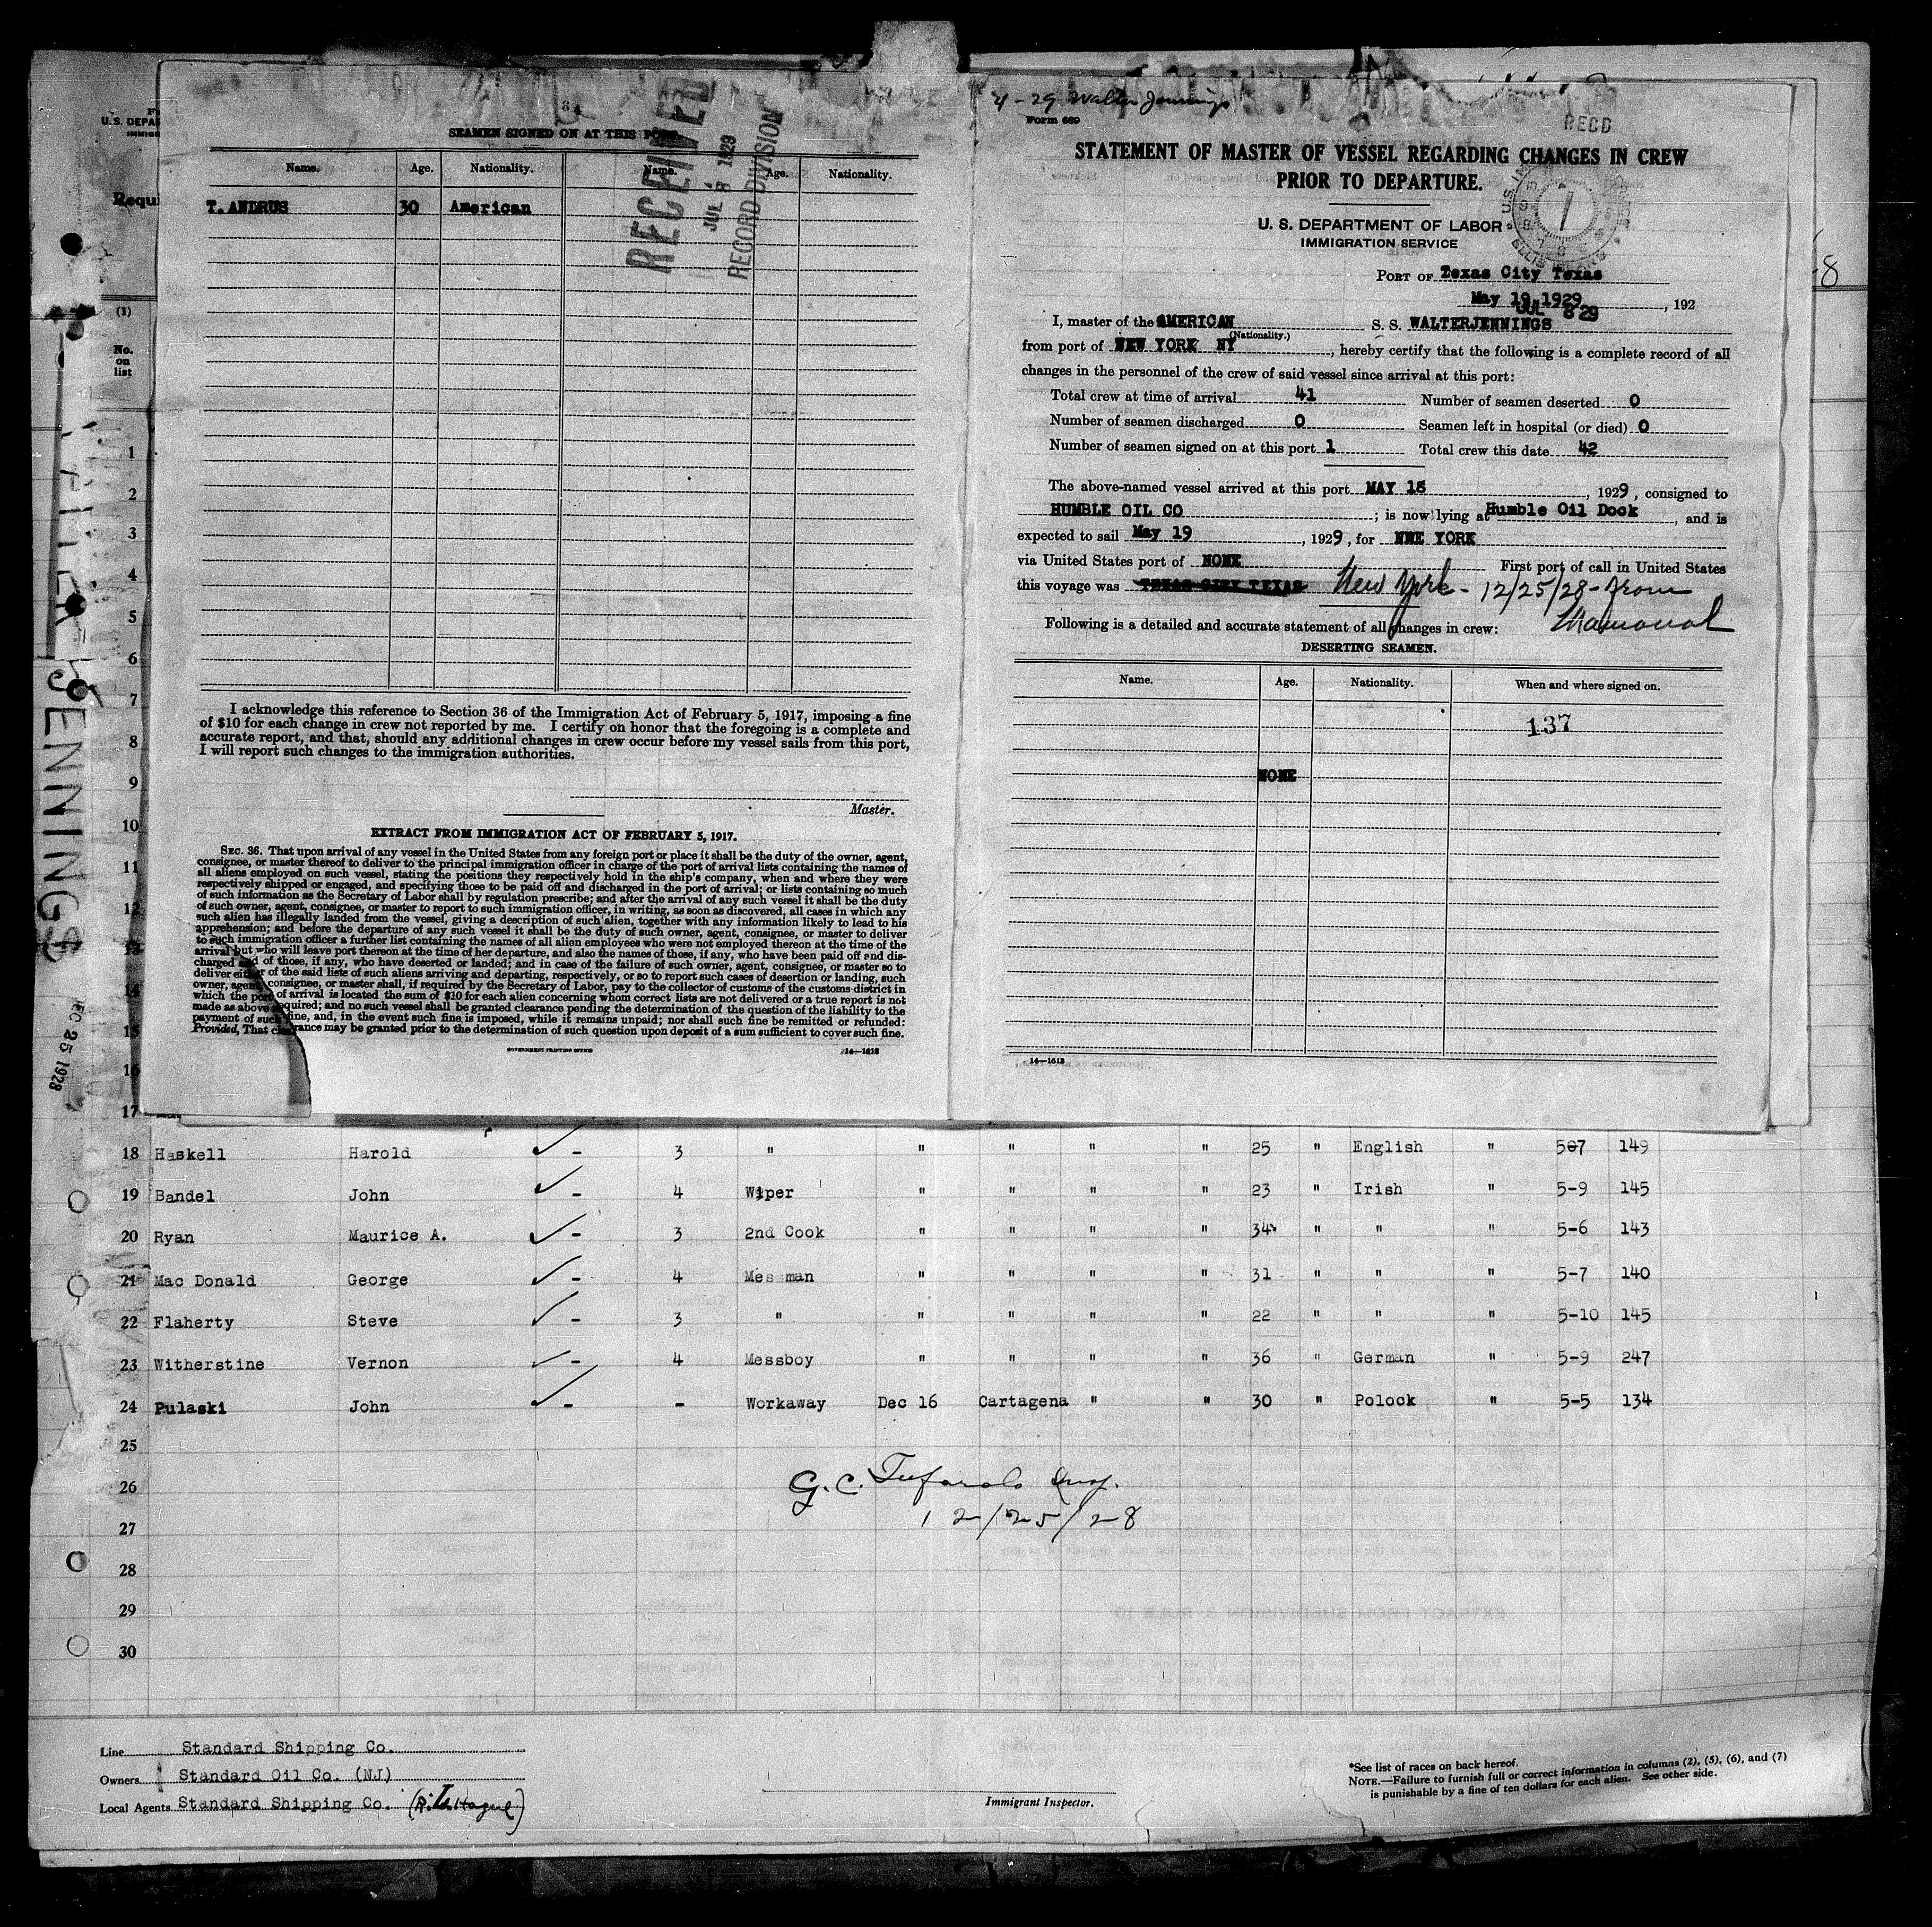 8 4
SEAMEN SIGNED ON AT THIS PORT.
Name. Age. Nationality. Name. Age. Nationality.
T. ANDRUS 30 American
RECEIVED
JUL 8 1929
RECORD DIVISION
I acknowledge this reference to Section 36 of the Immigration Act of February 5, 1917, imposing a fine
of $10 for each change in crew not reported by me. I certify on honor that the foregoing is a complete and
accurate report, and that, should any additional changes in crew occur before my vessel sails from this port,
I will report such changes to the immigration authorities.
Master.
EXTRACT FROM IMMIGRATION ACT OF FEBRUARY 5, 1917.
SEC. 36. That upon arrival of any vessel in the United States from any foreign port or place it shall be the duty of the owner, agent,
consignee, or master thereof to deliver to the principal immigration officer in charge of the port of arrival lists containing the names of
all aliens employed on such vessel, stating the positions they respectively hold in the ship's company, when and where they were
respectively shipped or engaged, and specifying those to be paid off and discharged in the port of arrival; or lists containing so much
of such information as the Secretary of Labor shall by regulation prescribe; and after the arrival of any such vessel it shall be the duty
of such owner, agent, consignee, or master to report to such immigration officer, in writing, as soon as discovered, all cases in which any
such alien has illegally landed from the vessel, giving a description of such alien, together with any information likely to lead to his
apprehension; and before the departure of any such vessel it shall be the duty of such owner, agent, consignee, or master to deliver
to such immigration officer a further list containing the names of all alien employees who were not employed thereon at the time of the
arrival but who will leave port thereon at the time of her departure, and also the names of those, if any, who have been paid off and dis-
charged and of those, if any, who have deserted or landed; and in case of the failure of such owner, agent, consignee, or master so to
deliver either of the said lists of such aliens arriving and departing, respectively, or so to report such cases of desertion or landing, such
owner, agent, consignee, or master shall, if required by the Secretary of Labor, pay to the collector of customs of the customs district in
which the port of arrival is located the sum of $10 for each alien concerning whom correct lists are not delivered or a true report is not
made as above required; and no such vessel shall be granted clearance pending the determination of the question of the liability to the
payment of such fine, and, in the event such fine is imposed, while it remains unpaid; nor shall such fine be remitted or refunded:
Provided, That clearance may be granted prior to the determination of such question upon deposit of a sum sufficient to cover such fine.
GOVERNMENT PRINTING OFFICE 14—1613
4-29 Walter Jennings
Form 689
RECD
STATEMENT OF MASTER OF VESSEL REGARDING CHANGES IN CREW
PRIOR TO DEPARTURE.
U. S. DEPARTMENT OF LABOR
IMMIGRATION SERVICE
PORT OF Texas City Texas
May 19 1929, 192
JUL 8 29
I, master of the AMERICAN S. S. WALTERJENNINGS
(Nationality.)
from port of NEW YORK NY, hereby certify that the following is a complete record of all
changes in the personnel of the crew of said vessel since arrival at this port:
Total crew at time of arrival 41 Number of seamen deserted 0
Number of seamen discharged 0 Seamen left in hospital (or died) 0
Number of seamen signed on at this port 1 Total crew this date 42
The above-named vessel arrived at this port MAY 18, 1929, consigned to
HUMBLE OIL CO; is now lying at Humble Oil Dock, and is
expected to sail May 19, 1929, for NWE YORK
via United States port of NONE First port of call in United States
this voyage was TEXAS CITY TEXAS New York - 12/25/28 - From
Mamonal
Following is a detailed and accurate statement of all changes in crew:
DESERTING SEAMEN.
Name. Age. Nationality. When and where signed on.
137
NONE
14—1613
U.S. DEPA
Requi
(1)
No.
on
list
1
2
3
4
5
6
7
8
9
10
11
12
13
14
15
16
17
JENNINGS
DEC 25 1928
-8
18 Haskell Harold - 3 " " " " " 25 " English " 507 149
19 Bandel John - 4 Wiper " " " " 23 " Irish " 5-9 145
20 Ryan Maurice A. - 3 2nd Cook " " " " 34 " " " 5-6 143
21 Mac Donald George - 4 Messman " " " " 31 " " " 5-7 140
22 Flaherty Steve - 3 " " " " " 22 " " " 5-10 145
23 Witherstine Vernon - 4 Messboy " " " " 36 " German " 5-9 247
24 Pulaski John - - Workaway Dec 16 Cartagena " " 30 " Polock " 5-5 134
25
26
27
28
29
30
G. C. Tufarolo Insp.
12/25/28
Line Standard Shipping Co.
Owners Standard Oil Co. (NJ)
Local Agents Standard Shipping Co.
Immigrant Inspector.
*See list of races on back hereof.
NOTE.—Failure to furnish full or correct information in columns (2), (5), (6), and (7)
is punishable by a fine of ten dollars for each alien. See other side.